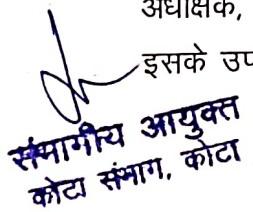 अधीक्षक,
इसके उप
संभागीय आयुक्त
कोटा संभाग, कोटा